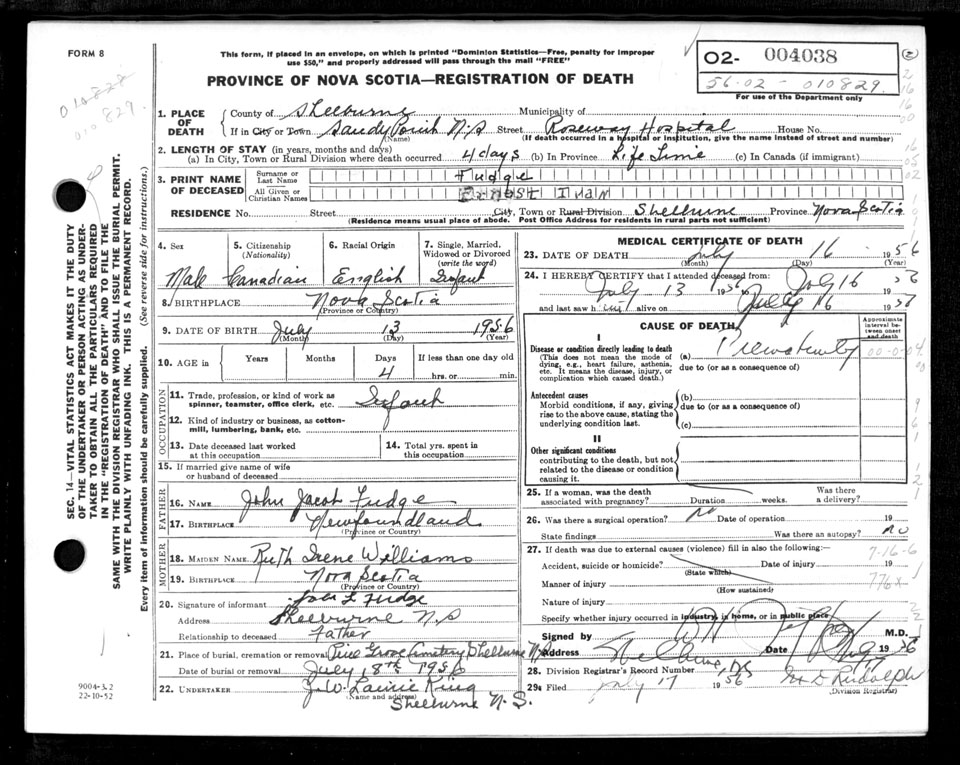 FORM 8
This form, if placed in an envelope, on which is printed "Dominion Statistics—Free, penalty for improper
use $50," and properly addressed will pass through the mail "FREE"
PROVINCE OF NOVA SCOTIA—REGISTRATION OF DEATH
O2- 004038
56-02-010829
For use of the Department only
010828
010829
SEC. 14—VITAL STATISTICS ACT MAKES IT THE DUTY
OF THE UNDERTAKER OR PERSON ACTING AS UNDER-
TAKER TO OBTAIN ALL THE PARTICULARS REQUIRED
IN THE "REGISTRATION OF DEATH" AND TO FILE THE
SAME WITH THE DIVISION REGISTRAR WHO SHALL ISSUE THE BURIAL PERMIT.
WRITE PLAINLY WITH UNFADING INK. THIS IS A PERMANENT RECORD.
Every item of information should be carefully supplied. (See reverse side for instructions.)
1. PLACE OF DEATH
County of Shelburne Municipality of
If in City or Town Sandy Point N.S Street Roseway Hospital House No.
(Name) (If death occurred in a hospital or institution, give the name instead of street and number)
2. LENGTH OF STAY (in years, months and days)
(a) In City, Town or Rural Division where death occurred 4 days (b) In Province Life Time (c) In Canada (if immigrant)
3. PRINT NAME OF DECEASED
Surname or Last Name Fudge
All Given or Christian Names Ernest Ivan
RESIDENCE No. Street City, Town or Rural Division Shelburne Province Nova Scotia
(Residence means usual place of abode. Post Office Address for residents in rural parts not sufficient)
4. Sex
Male
5. Citizenship (Nationality)
Canadian
6. Racial Origin
English
7. Single, Married, Widowed or Divorced (write the word)
Infant
8. BIRTHPLACE Nova Scotia
(Province or Country)
9. DATE OF BIRTH July 13 1956
(Month) (Day) (Year)
10. AGE in Years Months Days If less than one day old
4 hrs. or min.
OCCUPATION
11. Trade, profession, or kind of work as
spinner, teamster, office clerk, etc. Infant
12. Kind of industry or business, as cotton-
mill, lumbering, bank, etc.
13. Date deceased last worked
at this occupation
14. Total yrs. spent in
this occupation
15. If married give name of wife
or husband of deceased
FATHER
16. NAME John Jacob Fudge
17. BIRTHPLACE Newfoundland
(Province or Country)
MOTHER
18. MAIDEN NAME Ruth Irene Williams
19. BIRTHPLACE Nova Scotia
(Province or Country)
20. Signature of informant Fudge
Address Shelburne N.S
Relationship to deceased Father
21. Place of burial, cremation or removal Pine Grove Cemetery Shelburne N.S
Date of burial or removal July 18th 1956
22. UNDERTAKER J.W. Laurie King
(Name and address)
Shelburne N.S.
9004-3.2
22-10-52
MEDICAL CERTIFICATE OF DEATH
23. DATE OF DEATH July 16 1956
(Month) (Day)
24. I HEREBY CERTIFY that I attended deceased from:
July 13 1956 July 16 1956
and last saw h im alive on July 16 1956
CAUSE OF DEATH
Approximate interval between onset and death
I
Disease or condition directly leading to death
(This does not mean the mode of
dying, e.g., heart failure, asthenia,
etc. It means the disease, injury, or
complication which caused death.)
(a) Prematurity
due to (or as a consequence of)
Antecedent causes
Morbid conditions, if any, giving
rise to the above cause, stating the
underlying condition last.
(b)
due to (or as a consequence of)
(c)
II
Other significant conditions
contributing to the death, but not
related to the disease or condition
causing it.
25. If a woman, was the death
associated with pregnancy? Duration weeks. Was there
a delivery?
26. Was there a surgical operation? no Date of operation 19
State findings Was there an autopsy? no
27. If death was due to external causes (violence) fill in also the following:—
Accident, suicide or homicide? Date of injury 19
(State which)
Manner of injury
(How sustained)
Nature of injury
Specify whether injury occurred in industry, in home, or in public place
7-16-6
776X
Signed by M.D.
Address Shelburne, NS Date
28. Division Registrar's Record Number
29. Filed July 17 1956 Rudolph
Division Registrar